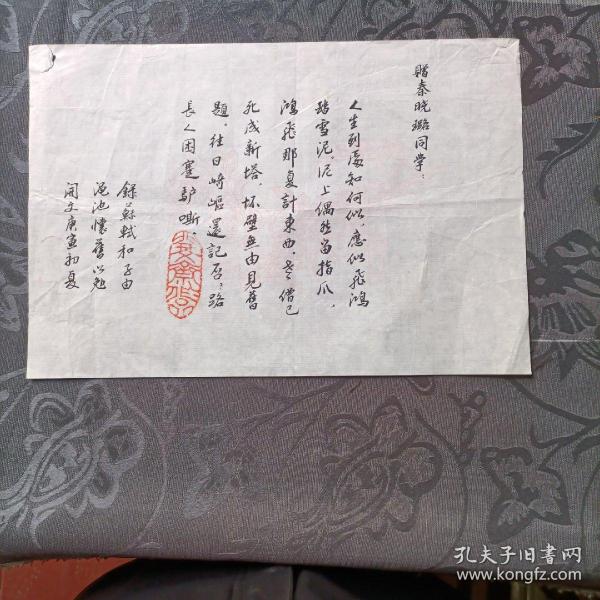 贈秦晓璐同学：
人生到處知何似，應似飛鴻
踏雪泥。泥上偶然留指爪，
鴻飛那复計東西。老僧已
死成新塔，坏壁無由見舊
題。往日崎嶇還記否，路
長人困蹇驴嘶。
錄蘇軾和子由
渑池懷舊以勉
庚寅初夏
孔夫子旧书网
www.kongfz.com